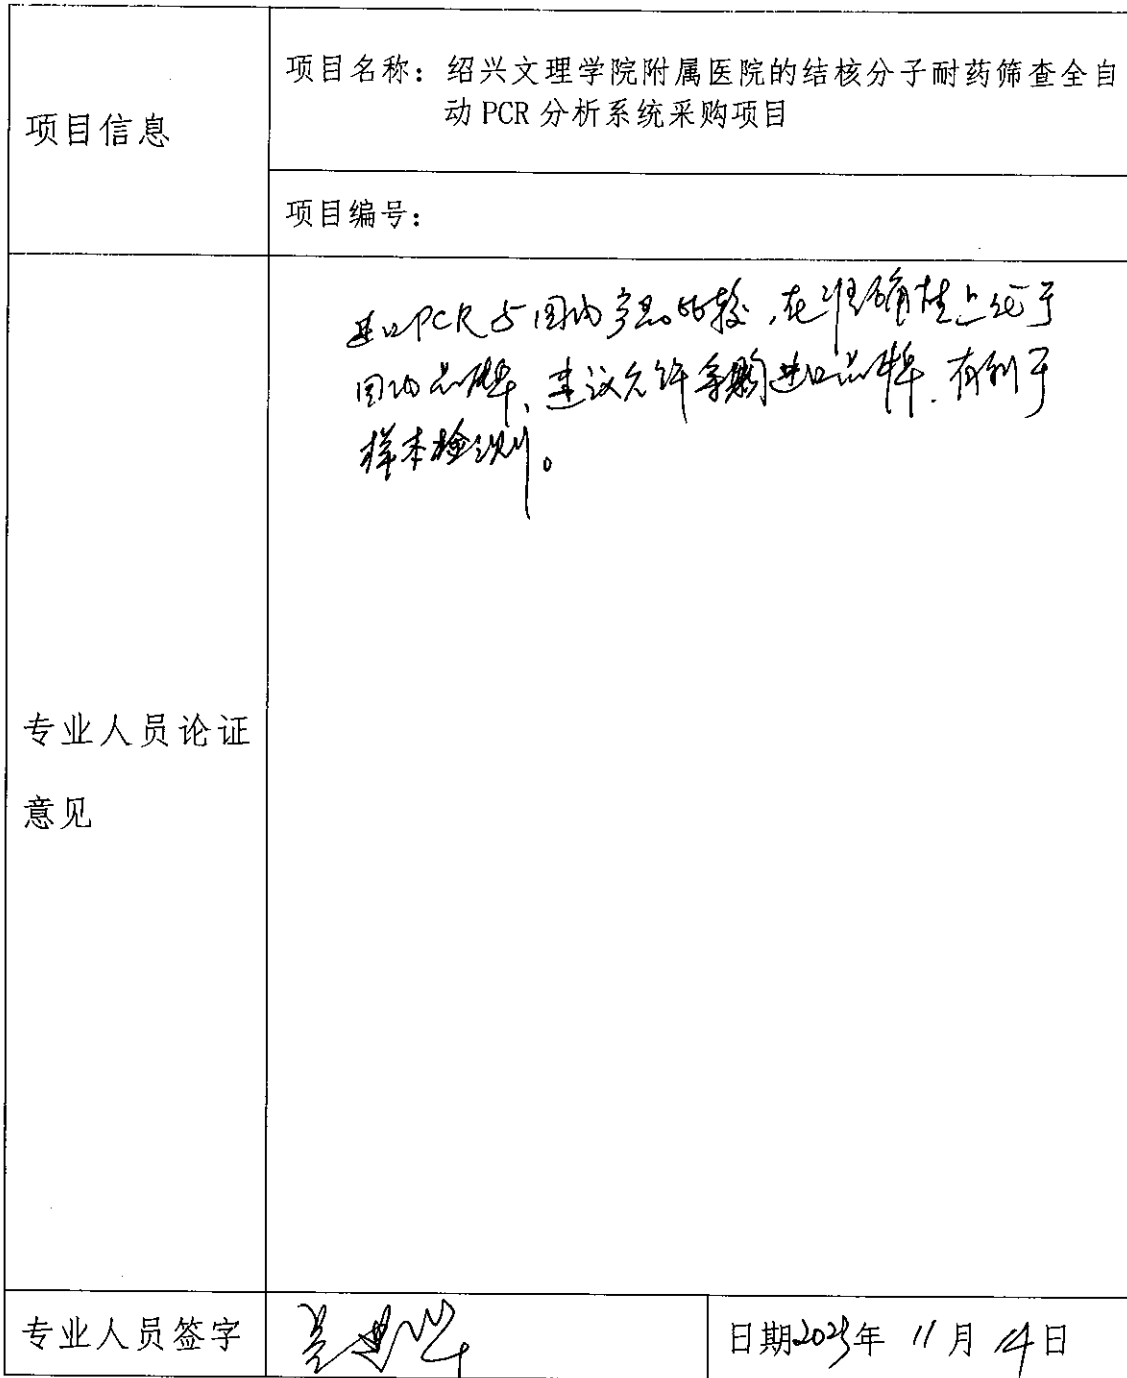 项目信息
项目名称：绍兴文理学院附属医院的结核分子耐药筛查全自
动 PCR 分析系统采购项目
项目编号：
进口PCR与国内产品比较,在准确性上优于
国内品牌、建议允许采购进口品牌.有利于
样本检测。
专业人员论证
意见
专业人员签字
日期2025年 11月 14日